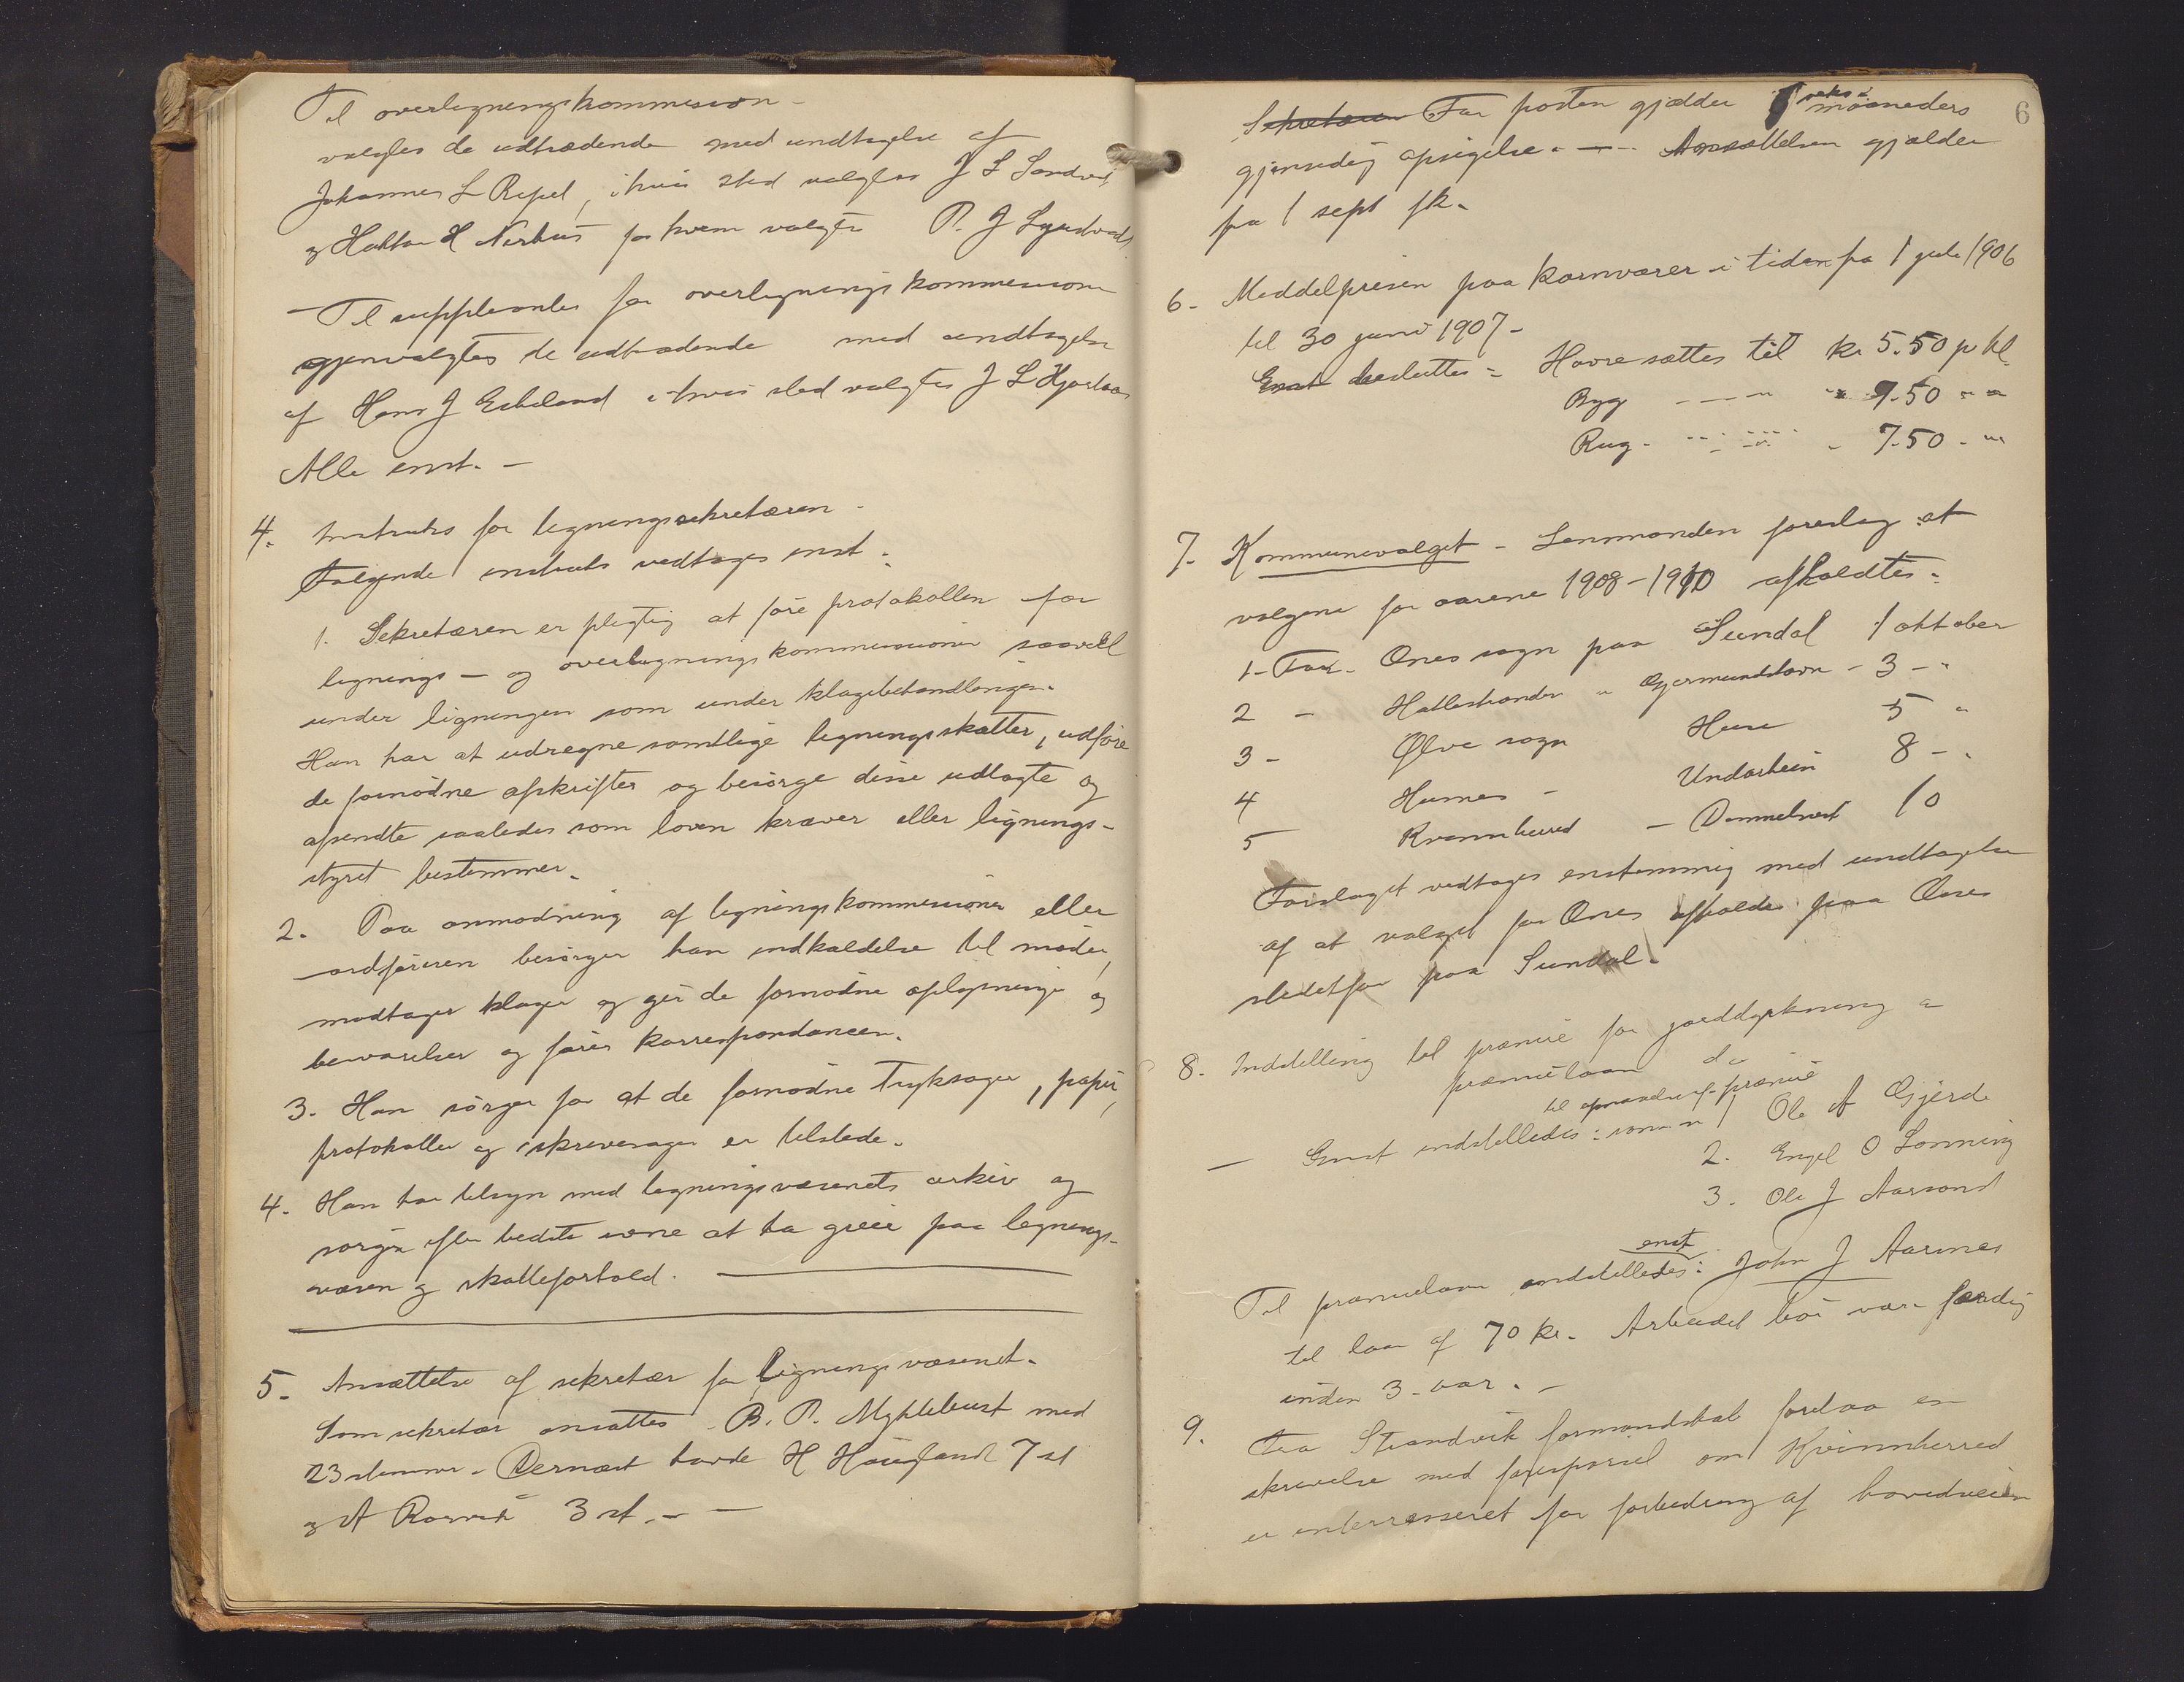 Til overligningskommission -
valgtes de udtrædende med undtagelse af
Johannes L Repel, i hvis sted valgtes J L Sandvik
og Haktor H Nerhus for hvem valgtes P. J
- Til suppleanter for overligningskommissionen
gjenvalgtes de udtrædende med undtagelse
af Hans J Eikeland i hvis sted valgtes J L Hjortaas
Alle enst. -
4. Instruks for ligningssekretæren -
Følgende instruks vedtages enst:
1. Sekretæren er pligtig at føre protokollen for
lignings - og overligningskommissionen saavel
under ligningen som under klagebehandlingen.
Han har at udregne samtlige ligningsskatter, udføre
de fornødne afskrifter og besørge disse udlagte og
afsendte saaledes som loven kræver eller lignings-
styret bestemmer.
2. Paa anmodning af ligningskommissionen eller
ordføreren besørger han indkaldelse til møder,
modtager klager og gir de fornødne oplysninger og
bevarelser og fører korrespondancen.
3. Han sørger for at de fornødne tryksager, papir,
protokoller og skrivesager er tilstede.
4. Han har tilsyn med ligningsvæsenets arkiv og
sørger efter bedste evne at ha greie paa lignings-
væsen og skatteforhold.
5. Ansættelse af sekretær for ligningsvæsenet.
Som sekretær ansattes B. P. Myklebust med
23 stemmer. Dernæst havde H Haugland 7 st
og A Rørvik 3 st. - -
6
Sekretæren For posten gjælder seks maaneders
gjensidig opsigelse. - Ansættelsen gjælder
fra 1 sept fk.
6. Middelprisen paa kornvarer i tiden fra 1 juli 1906
til 30 juni 1907 -
Enst besluttes: Havre sættes til kr 5.50 pr hl.
Byg - - " " 9.50 " "
Rug - " " - 7.50 - "
7. Kommunevalget - Lensmanden foreslog at
valgene for aarene 1908-1910 afholdtes:
1 - For Ænes sogn paa Sundal 1 oktober
2 - Hatlestranden " Gjermundshavn - 3 - "
3 - Ølve sogn Huse 5 "
4 Husnes - Undarheim 8 - "
5 Kvinnherred - Dimmelsvik 10
Forslaget vedtages enstemmig med undtagelse
af at valget for Ænes afholdes paa Ænes
istedetfor paa Sundal.
8. Indstilling til præmie for jorddyrkning &
præmielaan do
til opnaaelse af præmie
- Enst indstilledes: som nr 1 Ole A Gjerde
2. Engel O Lønning
3. Ole J Aarsand
Til præmielaan indstilledes enst: John J Aarsnes
til laan af 70 kr. Arbeidet bør være færdig
inden 3 aar. -
9. Fra Strandvik formandskab forelaa en
skrivelse med forespørsel om Kvinnherred
er interresseret for forbedring af hovedveien